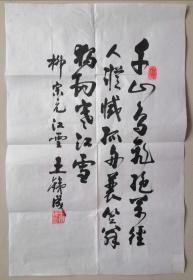 千山鸟飞绝万径
人踪灭孤舟蓑笠翁
独钓寒江雪
柳宗元江雪 王锦成